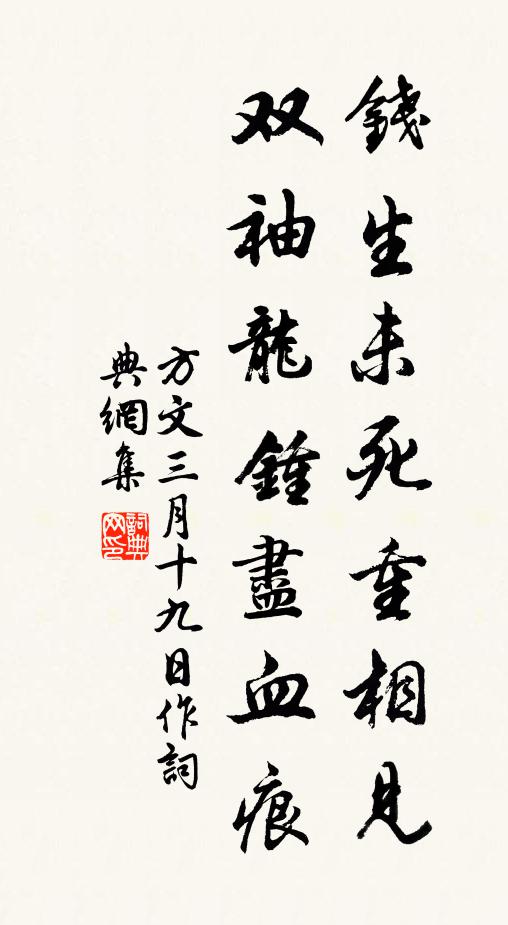 錢生未死重相見
双袖龍鍾盡血痕
方文三月十九日作詞
典網集
詞典網印